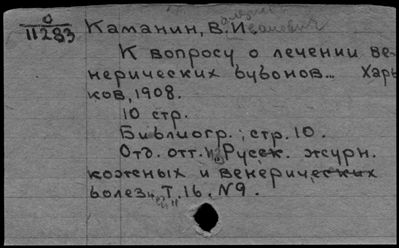 О
11283
Каманин, В. Иванович
К вопросу о лечении ве-
нерических бубонов... Харь
ков, 1908.
10 стр.
Библиогр.: стр. 10.
Отд. отт. из Русск. журн.
кожных и венерических
болезней". Т. 16. №9.